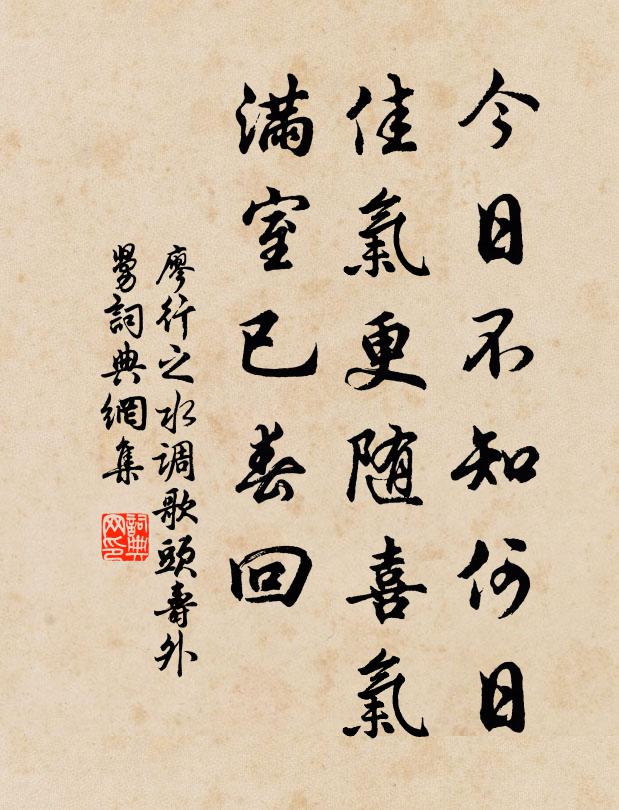 今日不知何日
佳氣更随喜氣
滿室已春回
廖行之水调歌頭壽外
舅詞典網集
詞典网印